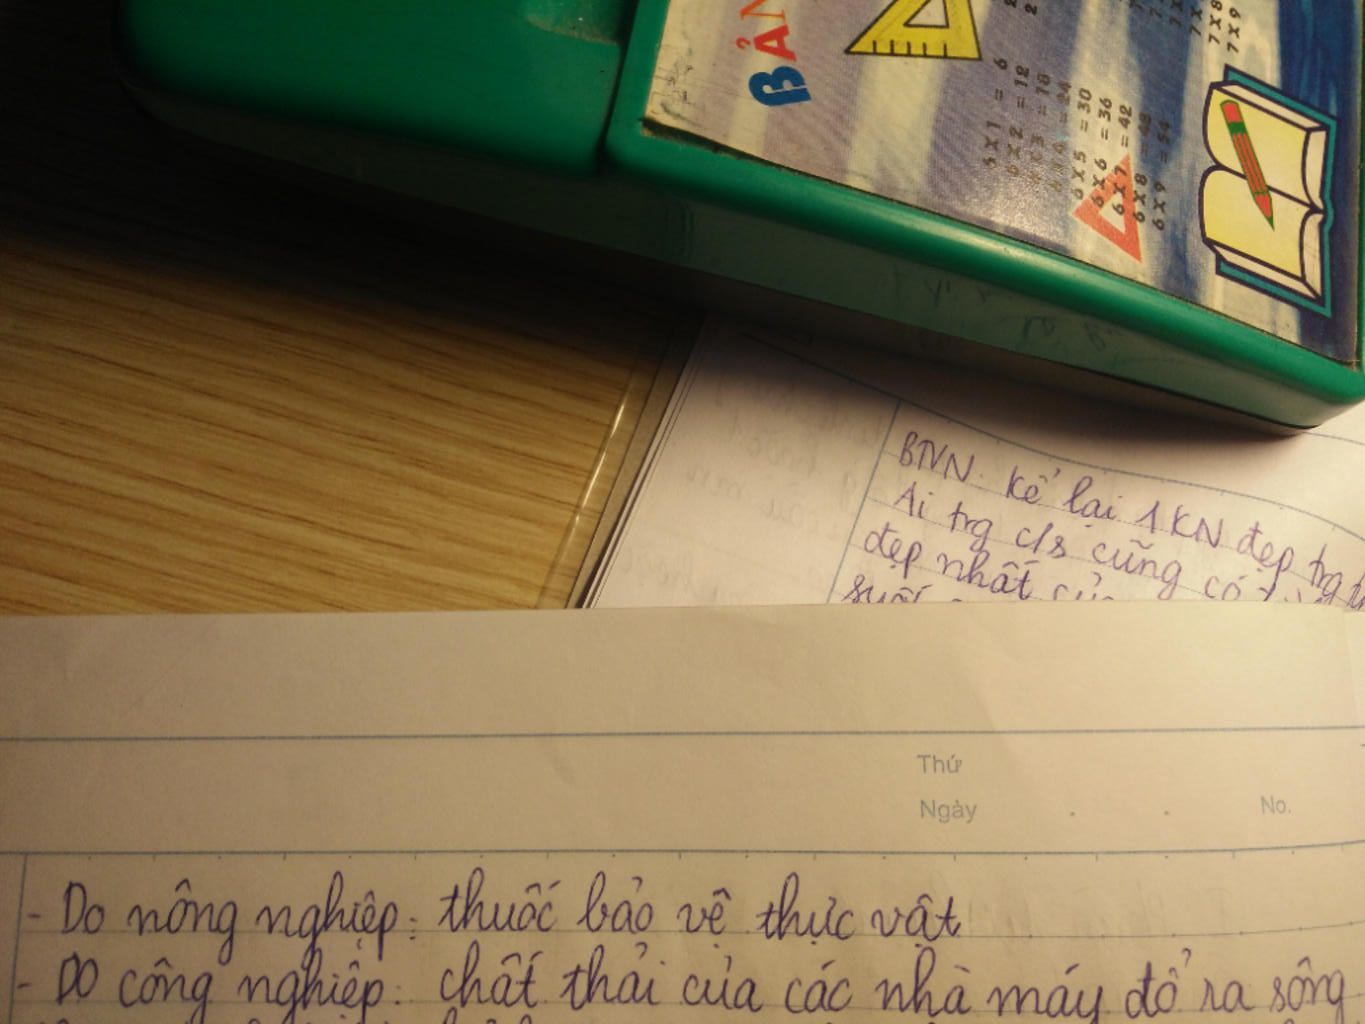 BẢN
6 X 1 = 6
6 X 2 = 12
6 X 3 = 18
6 X 4 = 24
6 X 5 = 30
6 X 6 = 36
6 X 7 = 42
6 X 8 = 48
6 X 9 = 54
7 X 8
7 X 9
BTVN: Kể lại 1 KN đẹp trg
Ai trg c/s cũng có
đẹp nhất của
suốt
Thứ
Ngày . . No.
- Do nông nghiệp: thuốc bảo vệ thực vật
- Do công nghiệp: chất thải của các nhà máy đổ ra sông